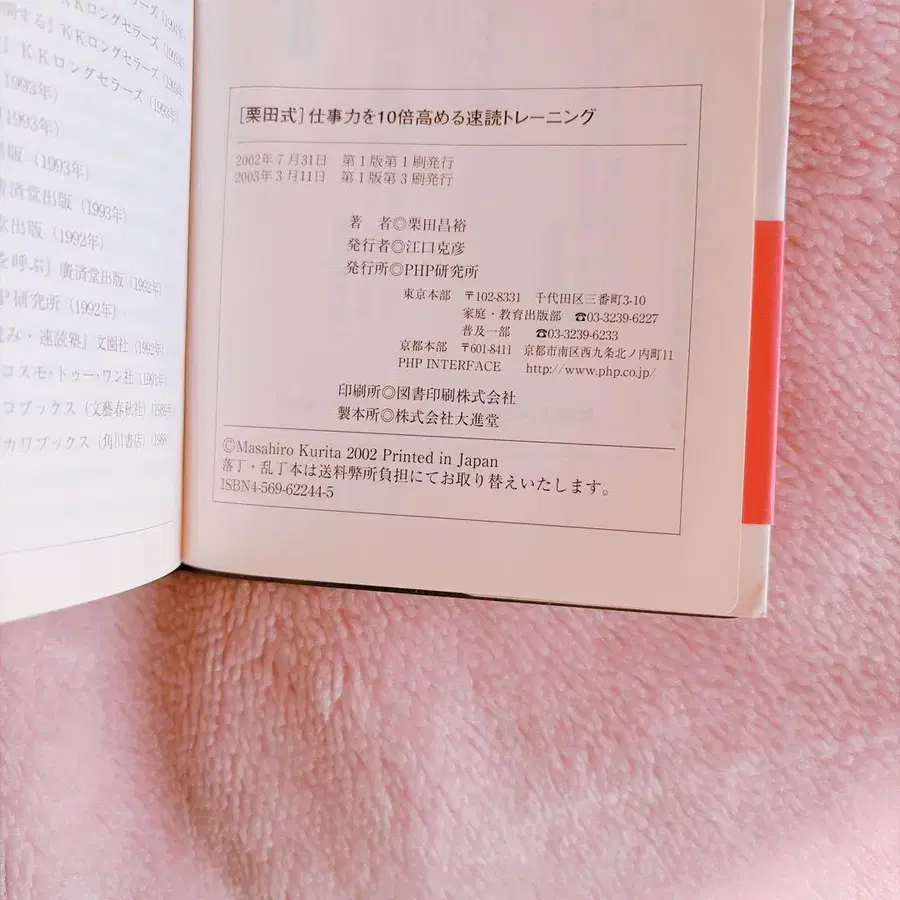 ーズ（1994年）
開する』KKロングセラーズ（1993年）
』KKロングセラーズ（1993年）
（1993年）
（1993年）
出版（1993年）
廣済堂出版（1993年）
堂出版（1992年）
を呼ぶ』廣済堂出版（1992年）
P研究所（1992年）
み・速読塾』文園社（1992年）
コスモ・トゥー・ワン社（1991年）
コブックス（文藝春秋社）（1989年）
カワブックス（角川書店）（1988
［栗田式］仕事力を10倍高める速読トレーニング
2002年7月31日　第1版第1刷発行
2003年3月11日　第1版第3刷発行
著　者◎栗田昌裕
発行者◎江口克彦
発行所◎PHP研究所
東京本部　〒102-8331　千代田区三番町3-10
家庭・教育出版部　☎03-3239-6227
普及一部　☎03-3239-6233
京都本部　〒601-8411　京都市南区西九条北ノ内町11
PHP INTERFACE　http://www.php.co.jp/
印刷所◎図書印刷株式会社
製本所◎株式会社大進堂
©Masahiro Kurita 2002 Printed in Japan
落丁・乱丁本は送料弊所負担にてお取り替えいたします。
ISBN4-569-62244-5